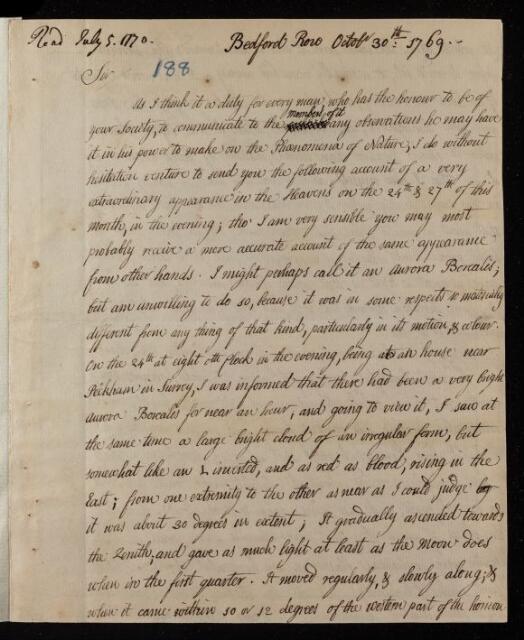 Read July 5. 1770.
Bedford Row Octobr 30th: 1769.
Sir
188
As I think it a duty for every man, who has the honour to be of
your Society, to communicate to the members of it any observations he may have
it in his power to make on the Phænomena of Nature, I do without
hesitation venture to send you the following account of a very
extraordinary appearance in the Heavens on the 24th & 27th of this
month, in the evening; tho' I am very sensible you may most
probably receive a more accurate account of the same appearance
from other hands. I might perhaps call it an Aurora Borealis;
but am unwilling to do so, because it was in some respects so materially
different from any thing of that kind, particularly in its motion, & colour.
On the 24th at eight oth Clock in the evening, being at an house near
Peckham in Surrey, I was informed that there had been a very bright
Aurora Borealis for near an hour, and going to view it, I saw at
the same time a large bright cloud of an irregular form, but
somewhat like an L inverted, and as red as blood, rising in the
East; from one extremity to the other as near as I could judge
it was about 30 degrees in extent; It gradually ascended towards
the Zenith, and gave as much light at least as the Moon does
when in the first quarter. It moved regularly, & slowly along; &
when it came within 10 or 12 degrees of the western part of the horizon